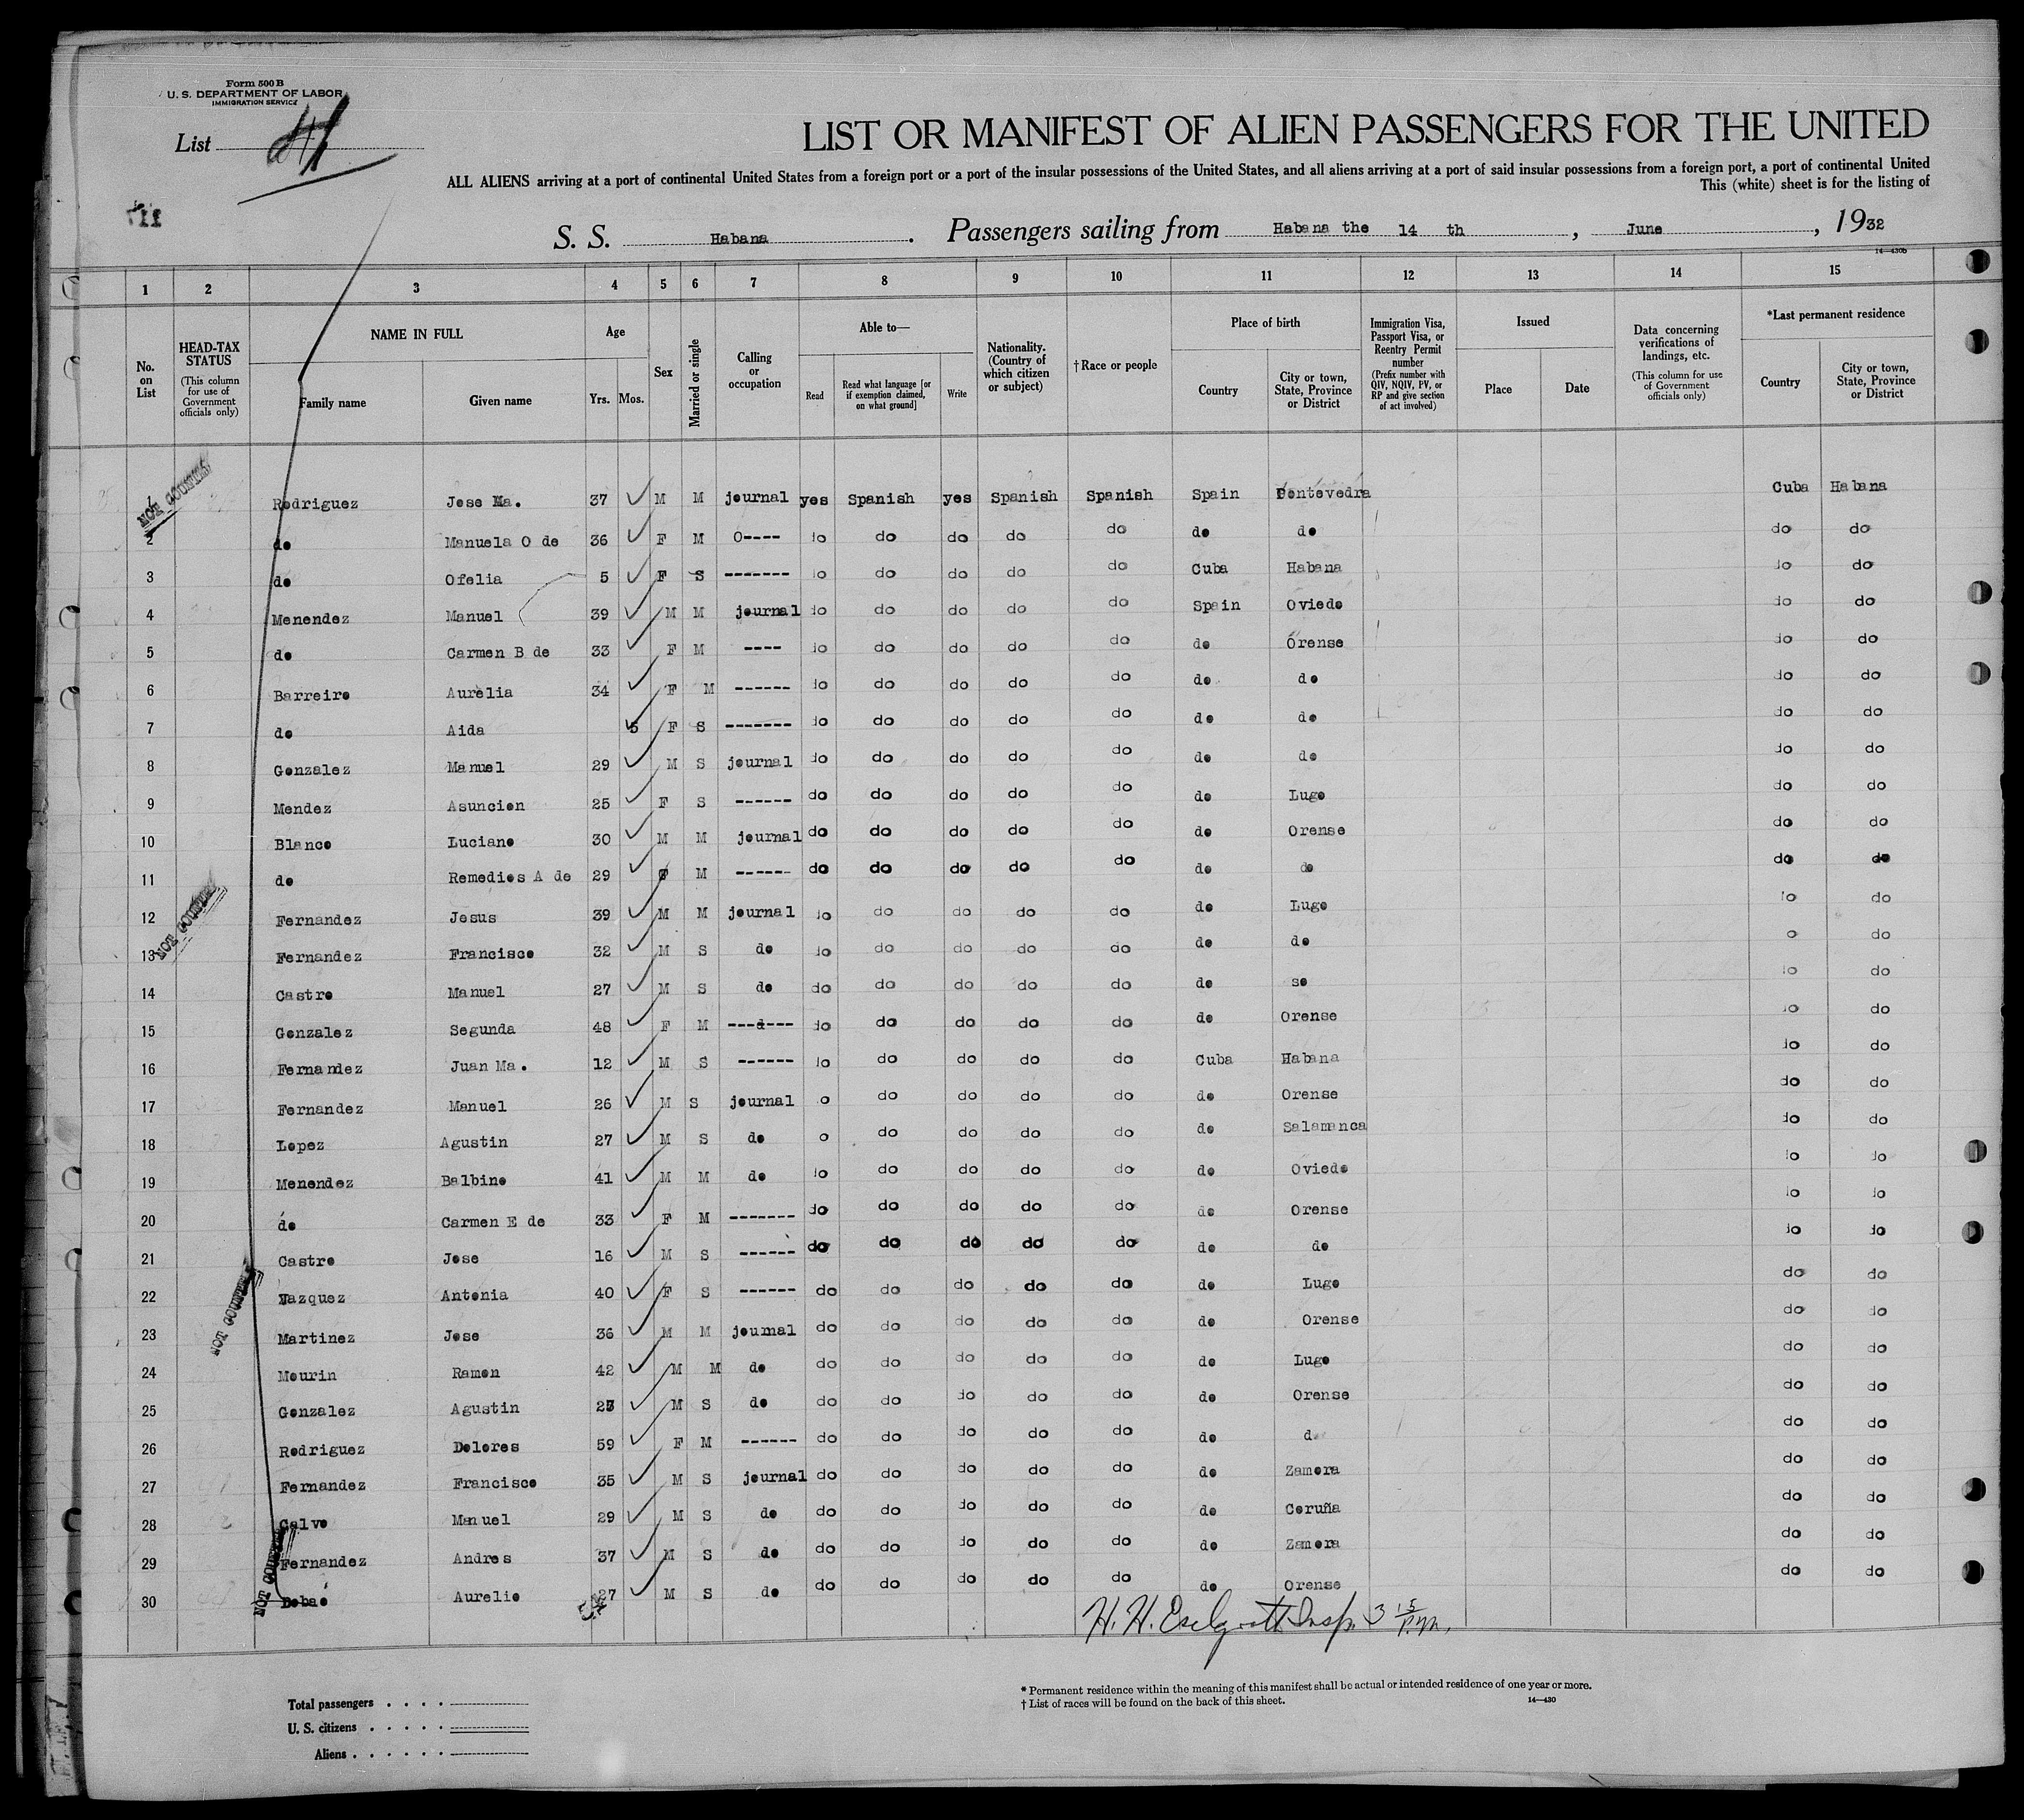 Form 500 B
U. S. DEPARTMENT OF LABOR
IMMIGRATION SERVICE
List
LIST OR MANIFEST OF ALIEN PASSENGERS FOR THE UNITED
ALL ALIENS arriving at a port of continental United States from a foreign port or a port of the insular possessions of the United States, and all aliens arriving at a port of said insular possessions from a foreign port, a port of continental United
This (white) sheet is for the listing of
S. S. Habana. Passengers sailing from Habana the 14 th, June, 1932
14—430b
1 2 3 4 5 6 7 8 9 10 11 12 13 14 15
No. on List
HEAD-TAX STATUS (This column for use of Government officials only)
NAME IN FULL
Family name
Given name
Age
Yrs. Mos.
Sex
Married or single
Calling or occupation
Able to—
Read
Read what language [or if exemption claimed, on what ground]
Write
Nationality. (Country of which citizen or subject)
† Race or people
Place of birth
Country
City or town, State, Province or District
Immigration Visa, Passport Visa, or Reentry Permit number (Prefix number with QIV, NQIV, PV, or RP and give section of act involved)
Issued
Place
Date
Data concerning verifications of landings, etc. (This column for use of Government officials only)
*Last permanent residence
Country
City or town, State, Province or District
1 Rodriguez Jose Ma. 37 M M journal yes Spanish yes Spanish Spanish Spain Pontevedra Cuba Habana
2 do Manuela O de 36 F M O---- do do do do do do do do do
3 do Ofelia 5 F S ------- do do do do do Cuba Habana do do
4 Menendez Manuel 39 M M journal do do do do do Spain Oviedo do do
5 do Carmen B de 33 F M ---- do do do do do do Orense do do
6 Barreiro Aurelia 34 F M ------ do do do do do do do do do
7 do Aida 5 F S ------- do do do do do do do do do
8 Gonzalez Manuel 29 M S journal do do do do do do do do do
9 Mendez Asuncion 25 F S ------ do do do do do do Lugo do do
10 Blanco Luciano 30 M M journal do do do do do do Orense do do
11 do Remedios A de 29 M ------ do do do do do do do do do
12 Fernandez Jesus 39 M M journal do do do do do do Lugo do do
13 Fernandez Francisco 32 M S do do do do do do do do o do
14 Castro Manuel 27 M S do do do do do do do so do do
15 Gonzalez Segunda 48 F M ---d--- do do do do do do Orense do do
16 Fernandez Juan Ma. 12 M S ------ do do do do do Cuba Habana do do
17 Fernandez Manuel 26 M S journal o do do do do do Orense do do
18 Lopez Agustin 27 M S do o do do do do do Salamanca do do
19 Menendez Balbino 41 M M do do do do do do do Oviedo do do
20 do Carmen E de 33 F M ------- do do do do do do Orense do do
21 Castro Jose 16 M S ------ do do do do do do do do do
22 Vazquez Antonia 40 F S ------ do do do do do do Lugo do do
23 Martinez Jose 36 M M journal do do do do do do Orense do do
24 Mourin Ramon 42 M M do do do do do do do Lugo do do
25 Gonzalez Agustin M S do do do do do do do Orense do do
26 Rodriguez Dolores 59 F M ------ do do do do do do d do do
27 Fernandez Francisco 35 M S journal do do do do do do Zamora do do
28 Calvo Manuel 29 M S do do do do do do do Coruña do do
29 Fernandez Andres 37 M S do do do do do do do Zamora do do
30 Aurelio 27 M S do do do do do do do Orense do do
NOT COUNTED
NOT COUNTED
NOT COUNTED
NOT COUNTED
H. H. Insp. 3 15 P.m.
Total passengers . . . .
U. S. citizens . . . . .
Aliens . . . . . .
* Permanent residence within the meaning of this manifest shall be actual or intended residence of one year or more.
† List of races will be found on the back of this sheet. 14—430